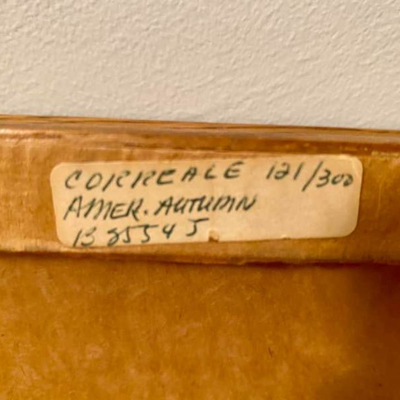 CORREALE 121/300
AMER. AUTUMN
B 85545